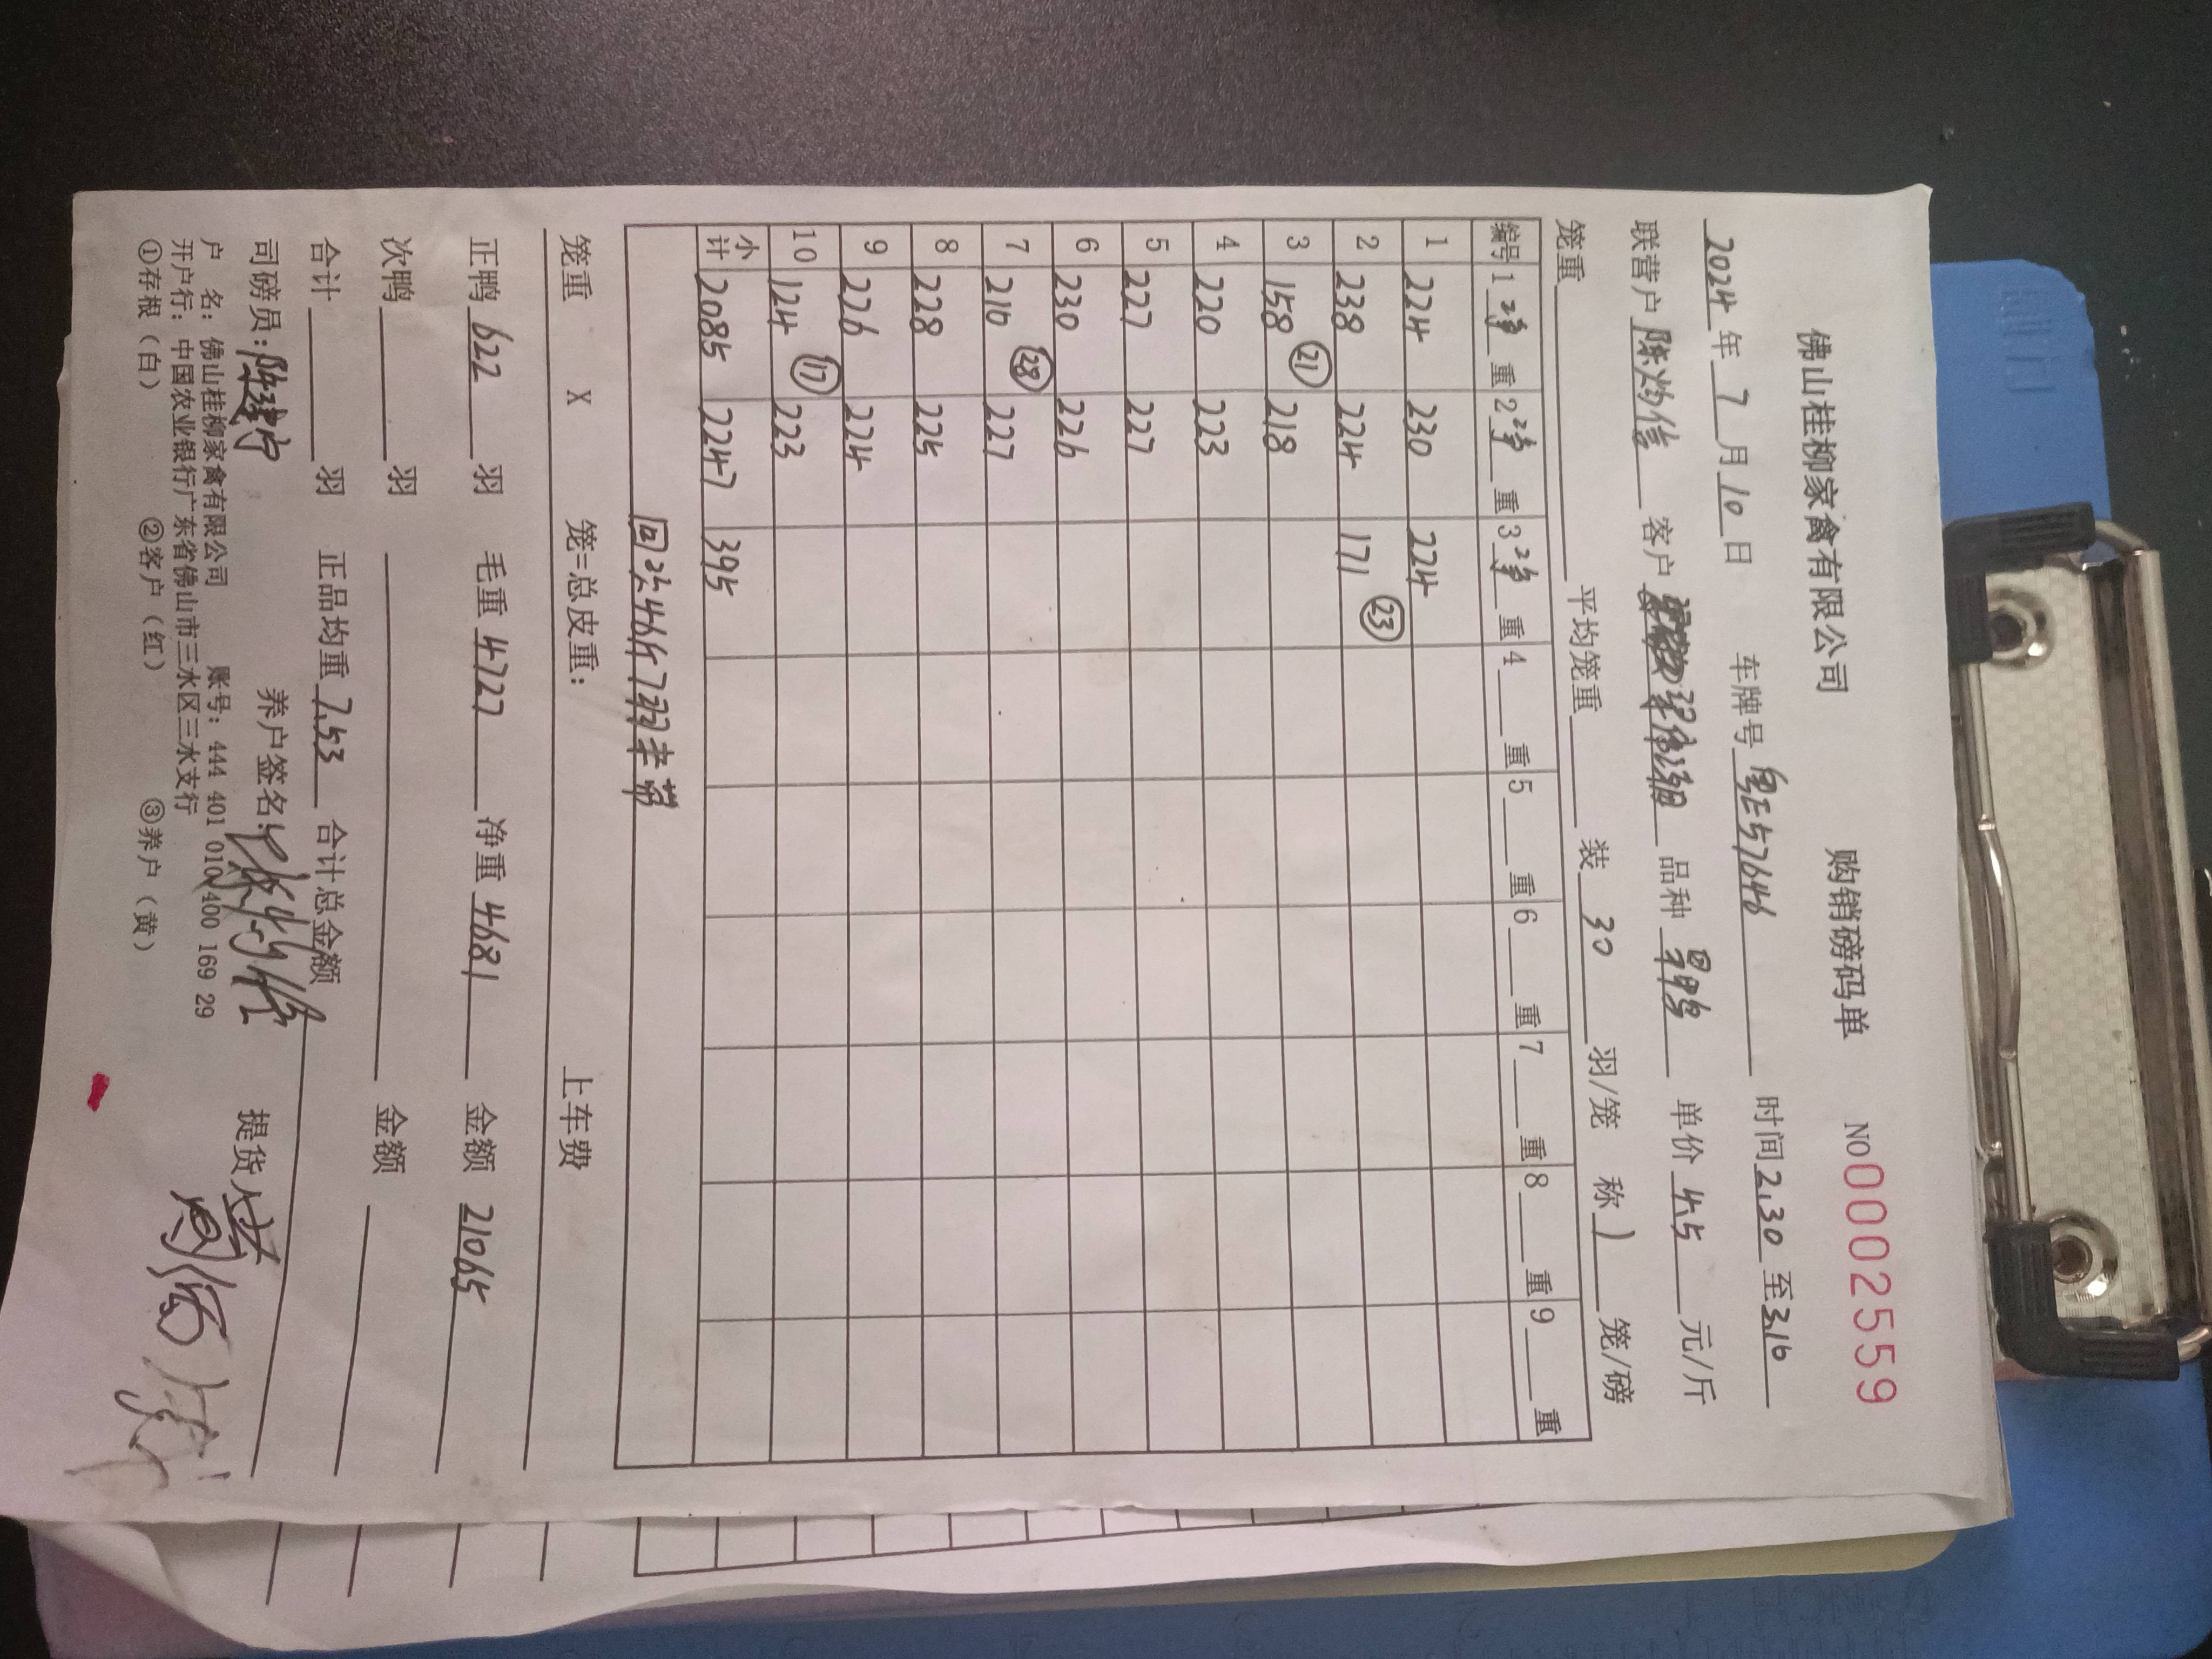 佛山桂柳家禽有限公司 购销磅码单 NO 0002559
2024年7月10日 车牌号粤E57646 时间2.30至3.16
联营户陈灼信 客户 品种 单价4.5元/斤
笼重 平均笼重 装30羽/笼 称1笼/磅
编号 1净重 2净重 3净重 4重 5重 6重 7重 8重 9重
1 224 230 224
2 238 224 171 ㉓
3 158 ㉑ 218
4 220 223
5 227 227
6 230 226
7 210 ㉘ 227
8 228 225
9 226 224
10 124 ⑰ 223
小计 2085 2247 395
回 46斤
笼重 X 笼=总皮重: 上车费
正鸭622羽 毛重4727 净重4681 金额21065
次鸭 羽 金额
合计 羽 正品均重7.53 合计总金额
司磅员: 养户签名:陈灼信 提货人
户 名: 佛山桂柳家禽有限公司 账号: 444 401 010 400 169 29
开户行: 中国农业银行广东省佛山市三水区三水支行
①存根(白) ②客户(红) ③养户(黄)